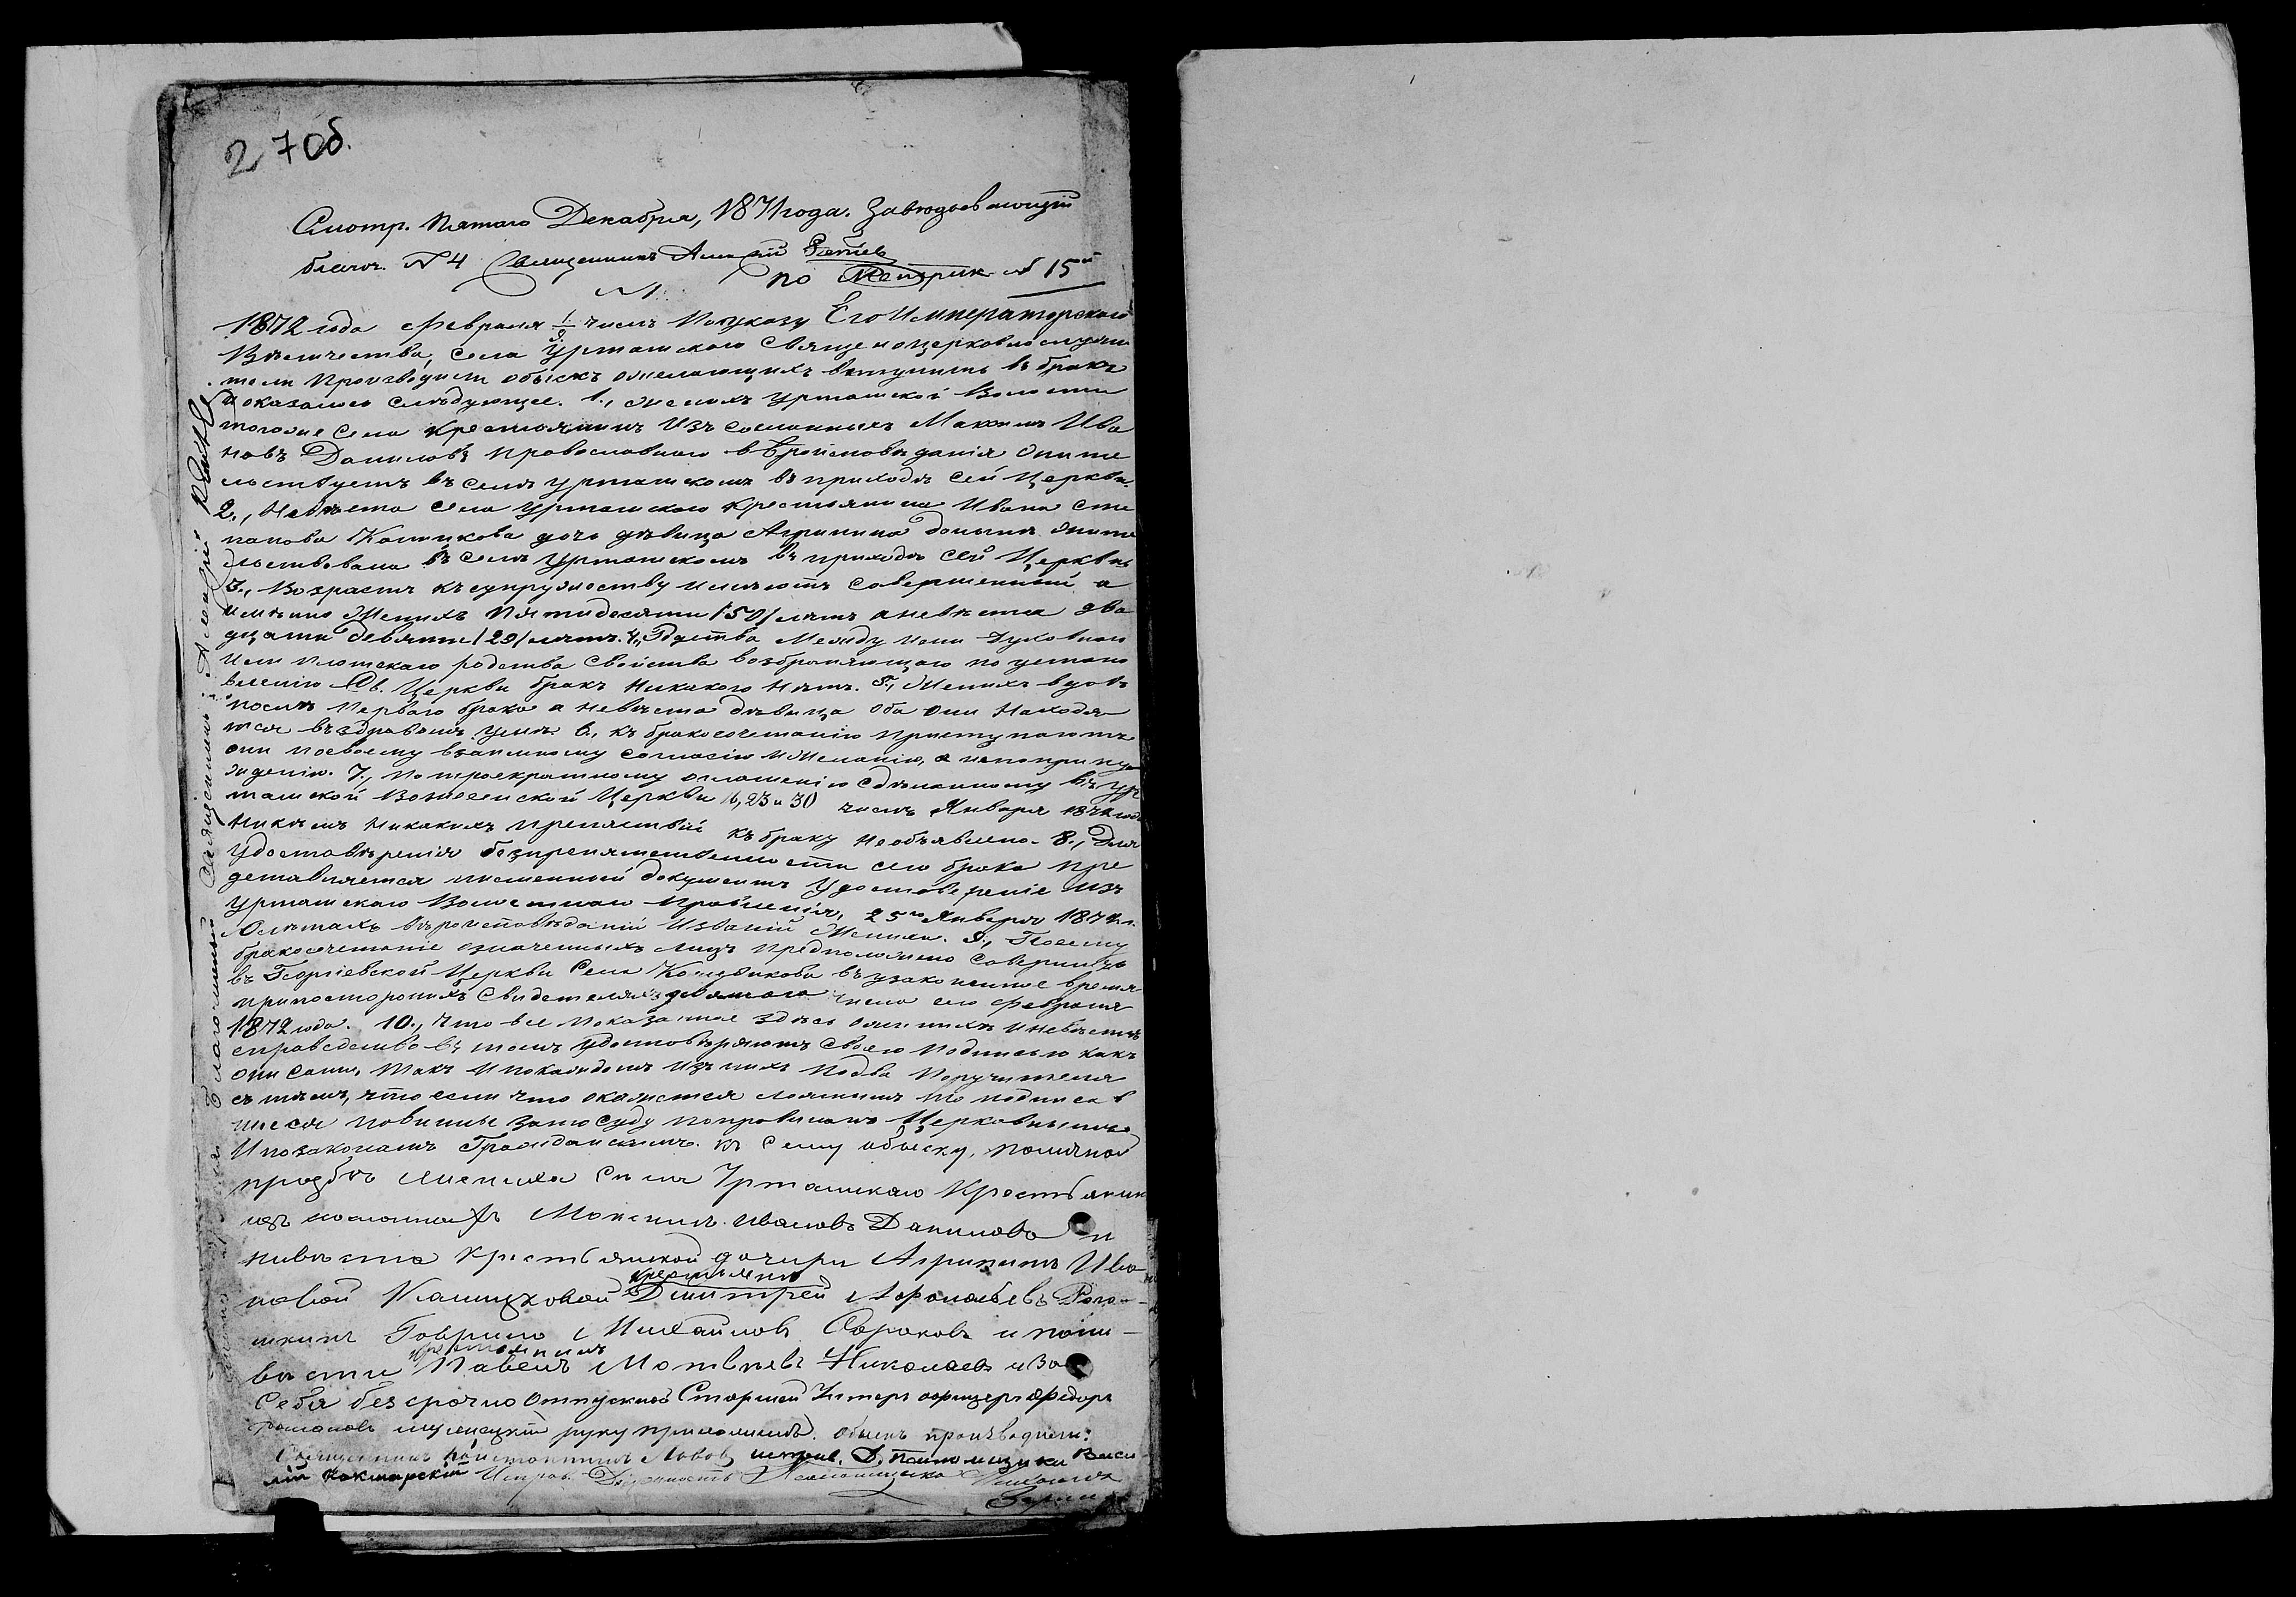 27об.
Смотр. Пятаго Декабря, 1871 года. Завѣдывающій
благоч. № 4 Священникъ Алексій
по Метрик. № 15й
№ 1.
1872 года Февраля числа По указу Его Императорскаго
Величества, села Урташскаго Священноцерковнослужи
тели производили обыскъ о желающихъ вступить въ бракъ
и оказалось слѣдующее. 1., Женихъ Урташской Волости
тогоже Села крестьянинъ изъ сосланныхъ Максимъ Ива
новъ Даниловъ православнаго вѣроисповѣданія жите
льствуетъ въ селѣ Урташскомъ въ приходѣ сей Церкви.
2., Невѣста села Урташскаго крестьянина Ивана Сте
панова дочь дѣвица Агрипина донынѣ жите
льствовала въ селѣ Урташскомъ въ приходѣ сей Церкви
3., Возрастъ къ супружеству имѣютъ совершенный а
именно Женихъ Пятидесяти /50/ лѣтъ а невѣста два
дцати девяти /29/ лѣтъ. 4., Родства между ими духовнаго
или плотскаго родства свойства возбраняющаго по устано
вленію Св. Церкви бракъ никакого нѣтъ. 5., Женихъ вдовъ
послѣ перваго брака а невѣста дѣвица оба они находя
тся въ здравомъ умѣ. 6., къ бракосочетанію приступаютъ
они по своему взаимному согласію и желанію, а не по прину
жденію. 7., По троекратному оглашенію сдѣланному въ Ур
ташской Вознесенской Церкви 16, 23 и 30 числъ Января 1872 года
никѣмъ никакихъ препятствій къ браку не объявлено. 8., Для
удостовѣренія безпрепятственности сего брака пре
дставляется письменный документъ удостовѣреніе изъ
Урташскаго Волостнаго Правленія, 25го Января 1872 г.
О лѣтахъ вѣроисповѣданіи и званіи Жениха. 9., Посему
бракосочетаніе означенныхъ лицъ предположено совершить
въ Георгіевской Церкви Села въ узаконенное время
при постороннихъ свидетеляхъ девятаго числа сего февраля
1872 года. 10., Что все показанное здѣсь о женихѣ и невѣстѣ
справедливо въ томъ удостовѣряютъ своею подписью какъ
они сами, такъ и по каждомъ изъ нихъ по два поручителя
съ тѣмъ, что если что окажется ложнымъ то подписав
шіеся повинны за то суду по правиламъ Церковнымъ
и по законамъ Гражданскимъ. Къ сему обыску, по личной
прозбѣ жениха Села Урташскаго Крестьянин
изъ Максима Иванова Данилова и
нивѣста крестьянской дочири Агрипины Ива
новой крестьянинъ Дмитрей
Гаврило Михайловъ и по ни
вѣсти крестьянинъ Павелъ Матвѣевъ Николаевъ и за
себя безсрочно отпускной Старшей Унтеръ офицеръ Федоръ
руку приложилъ. Обыскъ производили:
Священникъ Львовъ, исправ. Д. псаломщика Васи
лій Исправ. Должность Псаломщика
Благочинный Священникъ Алексій